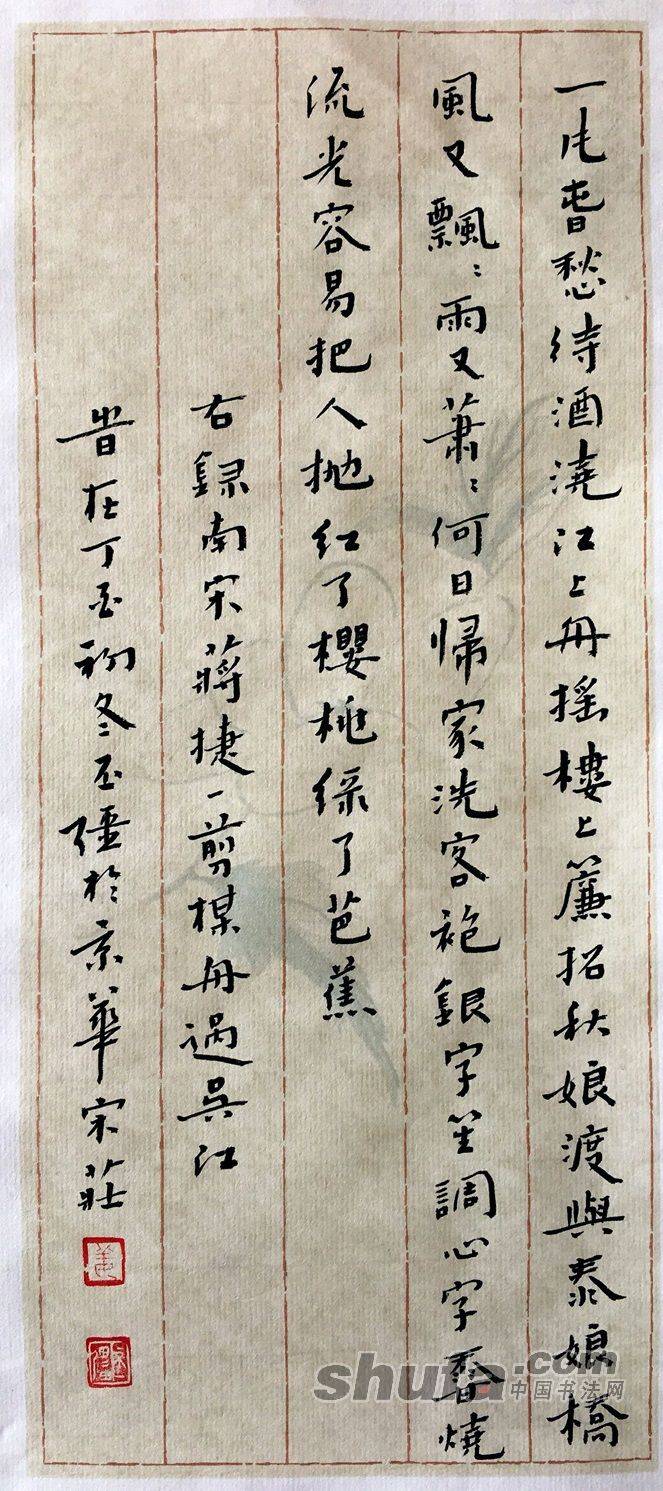 一片春愁待酒澆江上舟搖樓上簾招秋娘渡與泰娘橋
風又飄〻雨又蕭〻何日歸家洗客袍銀字笙調心字香燒
流光容易把人拋紅了櫻桃綠了芭蕉
右錄南宋蔣捷一剪梅舟過吳江
時在丁酉初冬 於京華宋莊
shufa.com
中国书法网